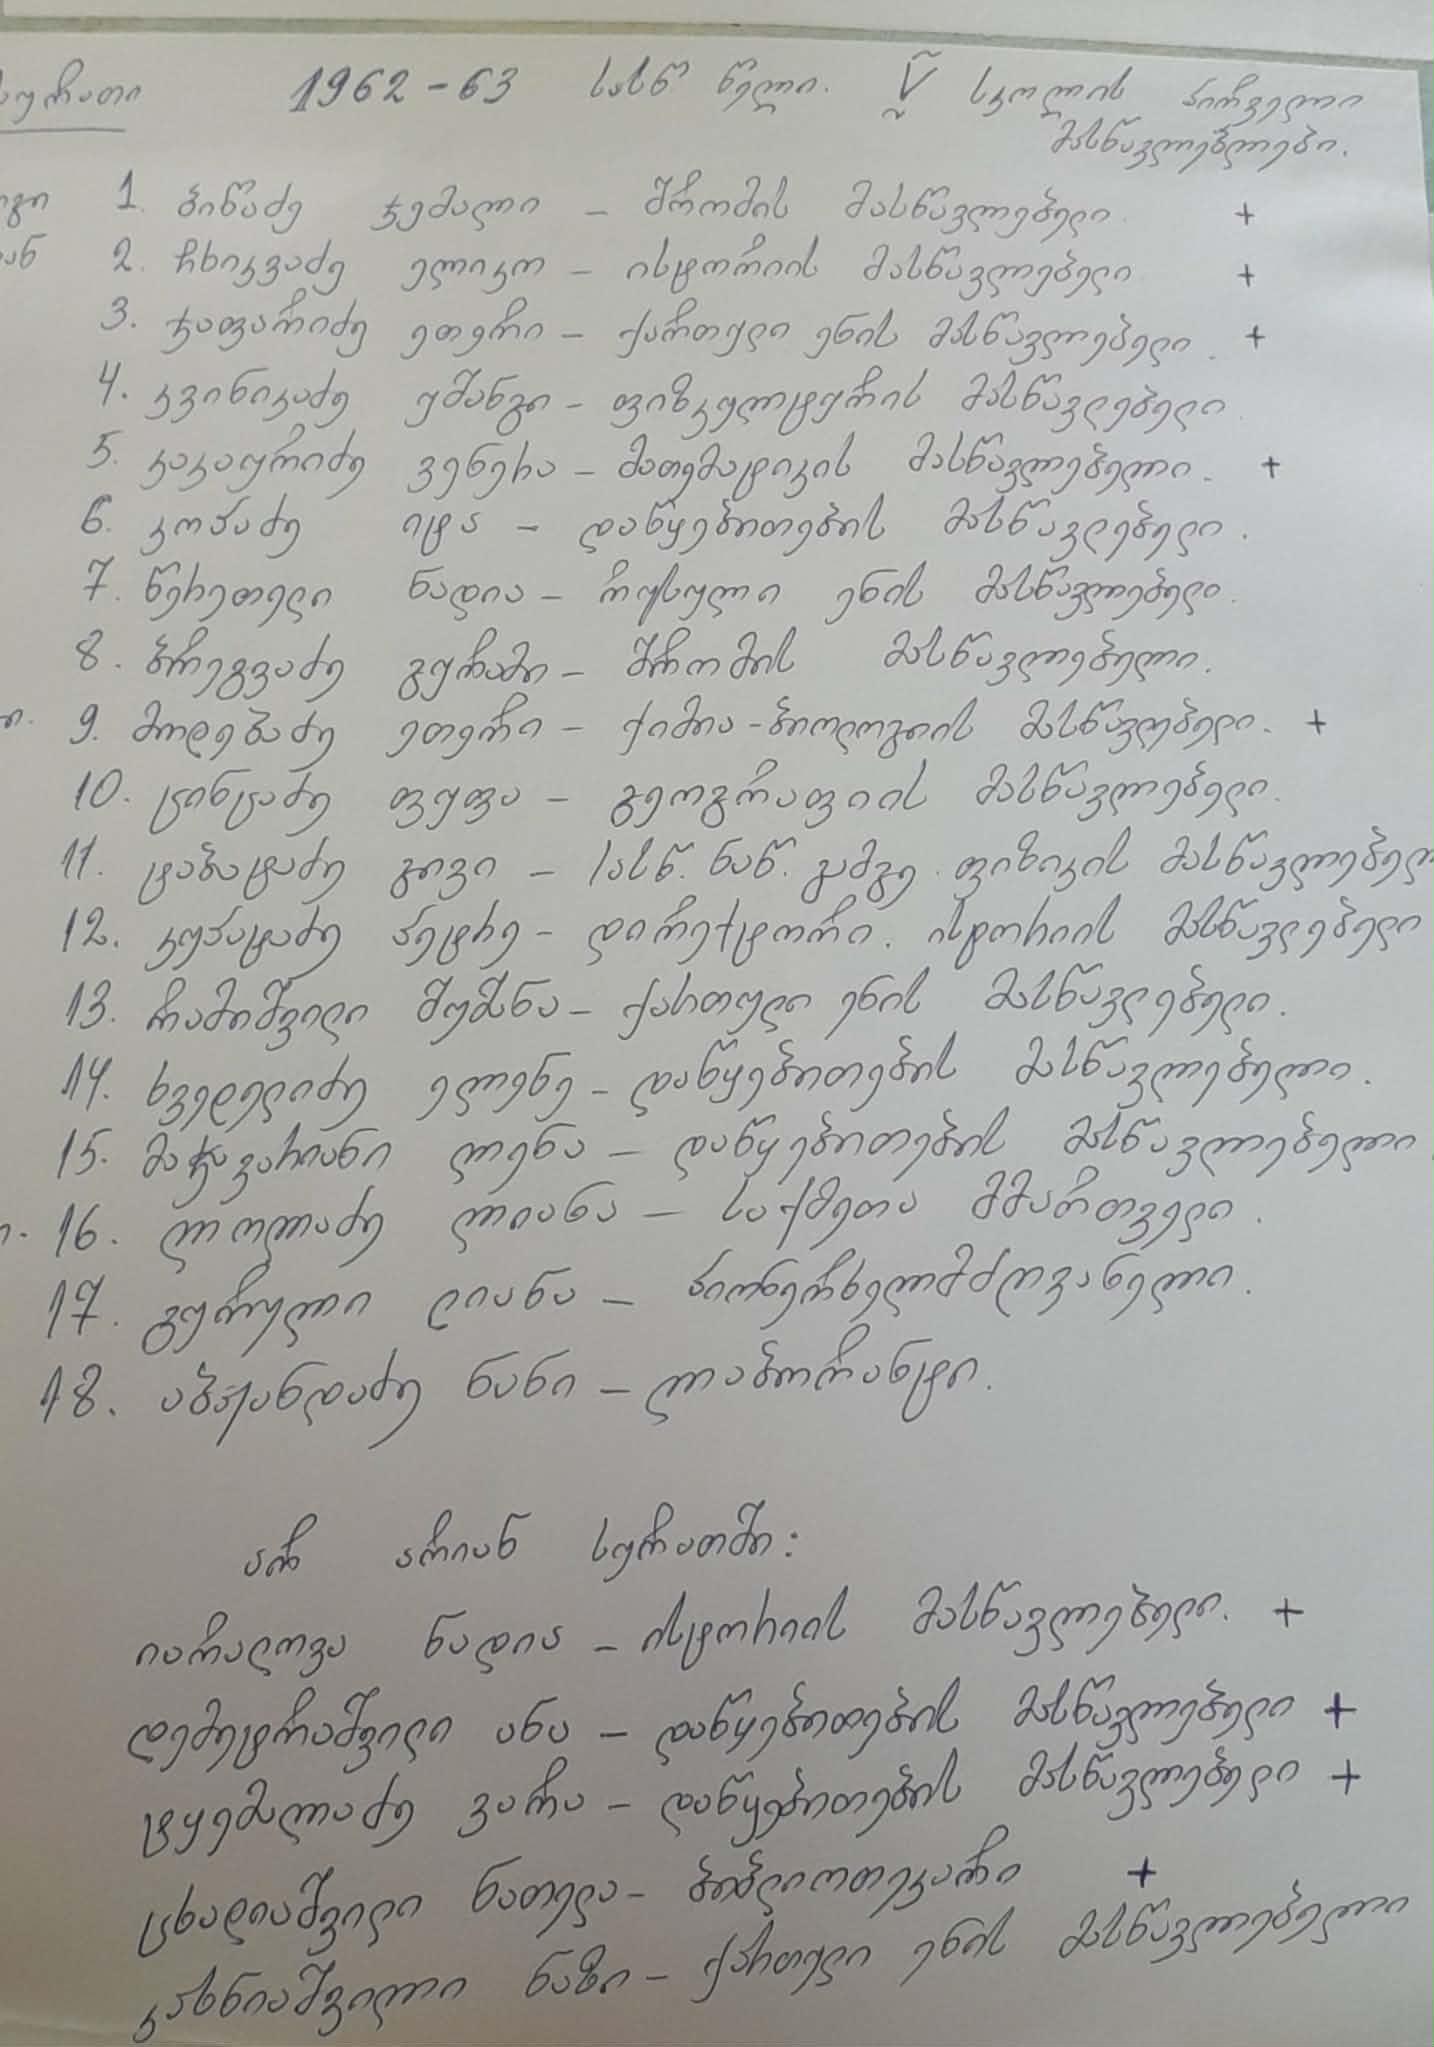 სურათი 1962-63 სასწ წელი. V სკოლის პირველი
მასწავლებლები.
1. ბიწაძე ჯემალი – შრომის მასწავლებელი +
2. ჩხიკვაძე ელიკო – ისტორიის მასწავლებელი +
3. ჯაფარიძე ეთერი – ქართული ენის მასწავლებელი. +
4. კვინიკაძე უშანგი – ფიზკულტურის მასწავლებელი
5. კაკაურიძე ვენერა – მათემატიკის მასწავლებელი. +
6. კოპაძე იტა – დაწყებითების მასწავლებელი.
7. წერეთელი ნადია – რუსული ენის მასწავლებელი.
8. ბრეგვაძე გურამი – შრომის მასწავლებელი.
9. მოდებაძე ეთერი – ქიმია-ბიოლოგიის მასწავლებელი. +
10. ცინცაძე ფუფა – გეოგრაფიის მასწავლებელი.
11. ტაბატაძე გივი – სასწ. ნაწ. გამგე. ფიზიკის მასწავლებელ
12. კუპატაძე პეტრე – დირექტორი. ისტორიის მასწავლებელი
13. რამიშვილი შუშანა – ქართული ენის მასწავლებელი.
14. ხვედელიძე ელენე – დაწყებითების მასწავლებელი.
15. მაჭავარიანი ლენა – დაწყებითების მასწავლებელი.
16. ლოლაძე ლიანა – საქმეთა მმართველი.
17. გურული ლიანა – პიონერხელმძღვანელი.
18. აბჟანდაძე ნანი – ლაბორანტი.
არ არიან სურათში:
იარალოვა ნადია – ისტორიის მასწავლებელი. +
დემეტრაშვილი ანა – დაწყებითების მასწავლებელი +
ტყემალაძე ვარა – დაწყებითების მასწავლებელი +
ცხადიაშვილი ნათელა – ბიბლიოთეკარი +
კახნიაშვილი ნაზი – ქართული ენის მასწავლებელი